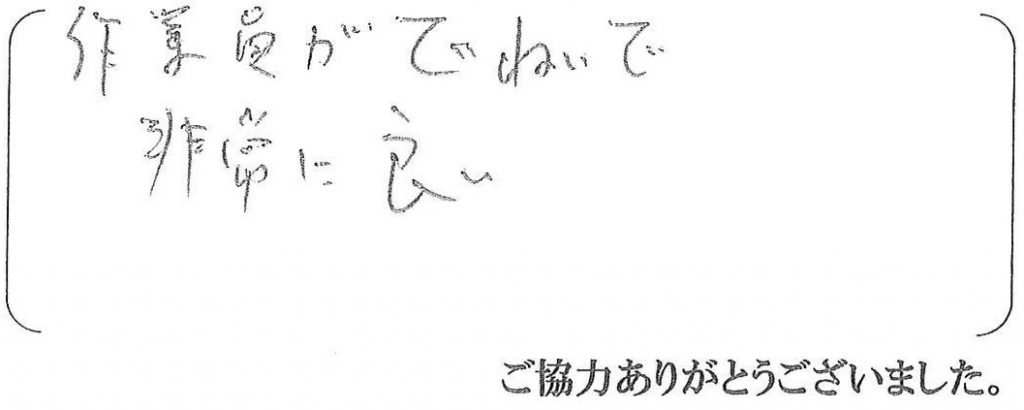 作業員がでねいで
非常に良い
ご協力ありがとうございました。